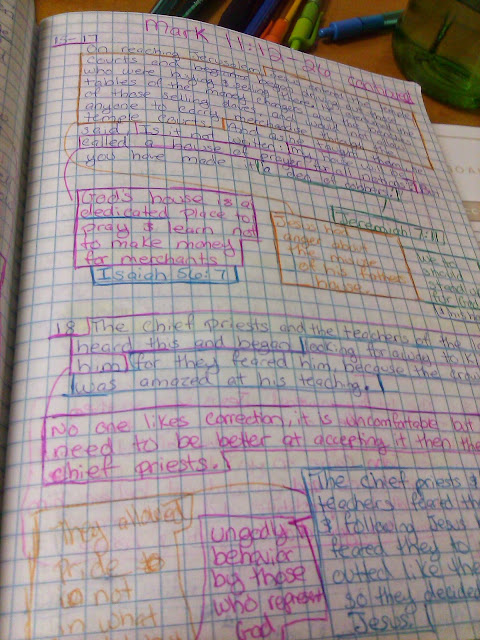 Mark 11:12-26 continued
15-17
On reaching Jerusalem,
courts and began driving
who were buying & selling
tables of the money changers and the
of those selling doves, and
anyone to carry merchandise
temple courts. And as he taught them, he
said, Is it not written: My house will be
called a house of prayer for all nations? But
you have made it a den of robbers.
Jeremiah 7:11
God's house is a
dedicated place to
pray & learn not
to make money
for merchants
Isaiah 56:7
Jesus
anger about
the misuse
of his Father's
house.
should
stand
for God
18 The chief priests and the teachers of the
heard this and began looking for a way to
him for they feared him, because the
was amazed at his teaching.
No one likes correction, it is uncomfortable but
need to be better at accepting it then the
chief priests.
They allowed
pride to
not
in what
ungodly
behavior
by those
who represent
God.
The chief priests &
teachers feared
& following Jesus
feared they to
outted like the
so they decided
Jesus.